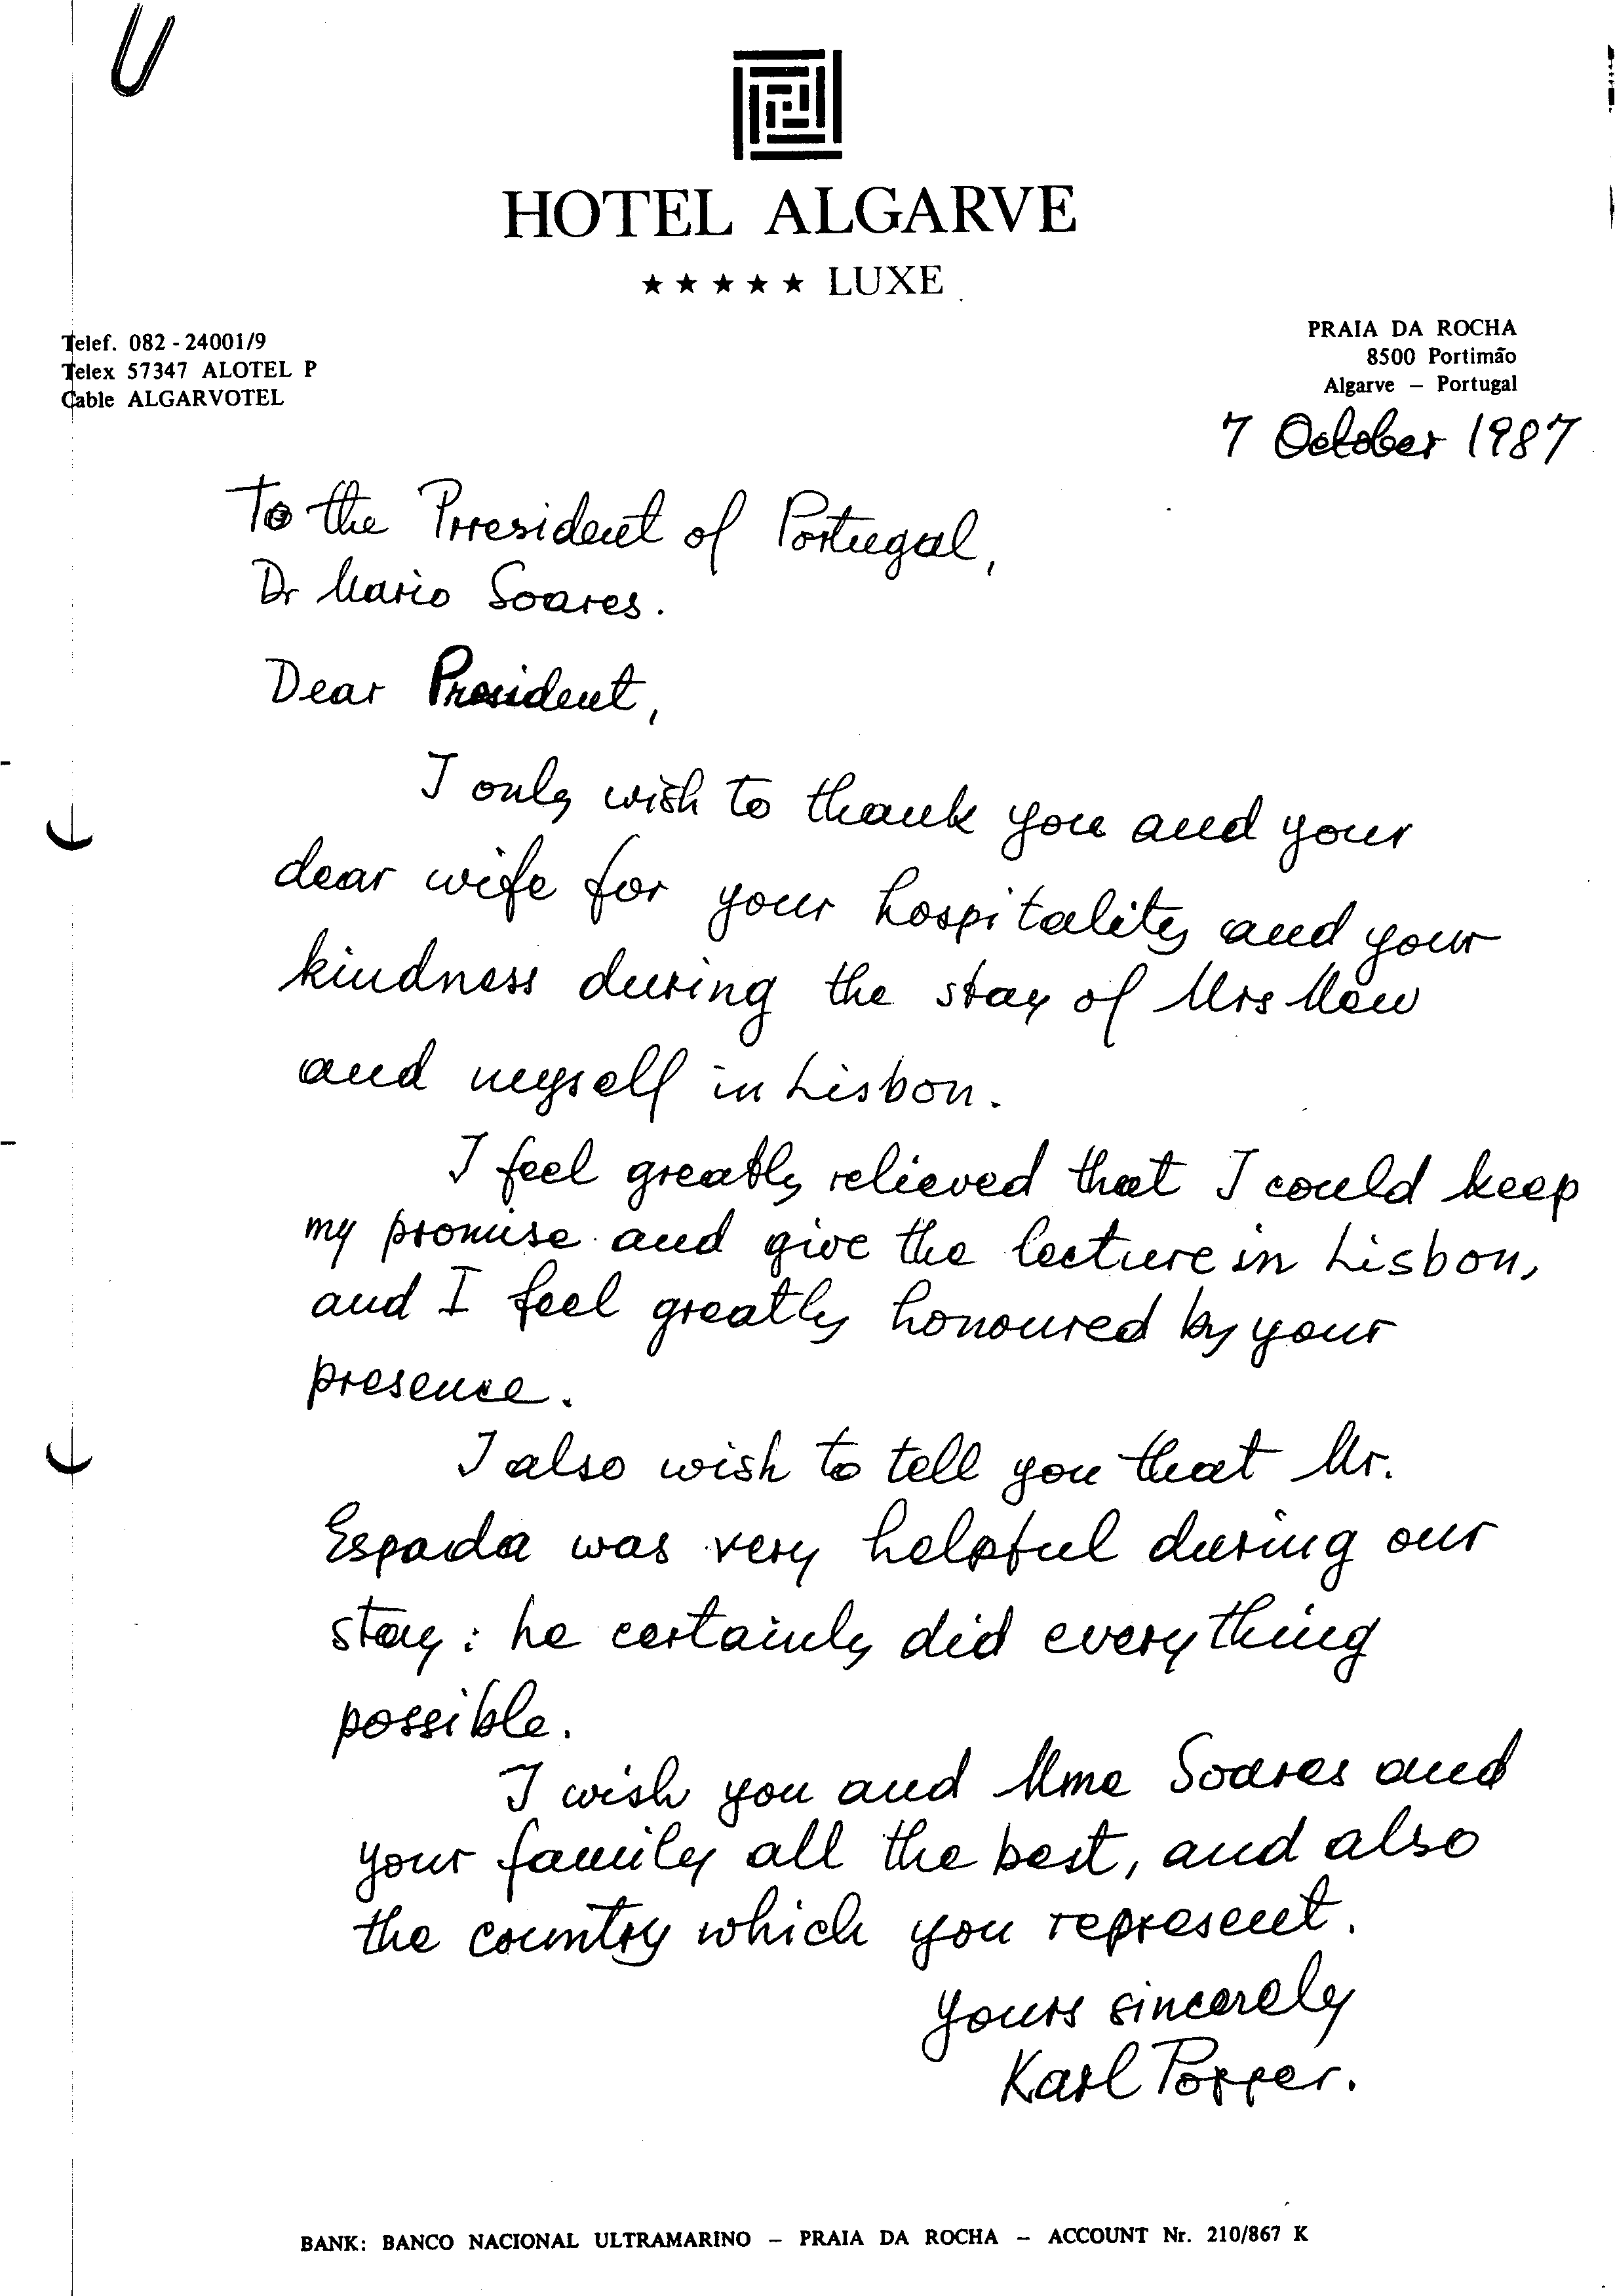 HOTEL ALGARVE
★★★★★ LUXE
Telef. 082 - 24001/9
Telex 57347 ALOTEL P
Cable ALGARVOTEL
PRAIA DA ROCHA
8500 Portimão
Algarve – Portugal
7 October 1987
To the President of Portugal,
Dr Mario Soares.
Dear President,
I only wish to thank you and your
dear wife for your hospitality and your
kindness during the stay of Mrs Mew
and myself in Lisbon.
I feel greatly relieved that I could keep
my promise and give the lecture in Lisbon,
and I feel greatly honoured by your
presence.
I also wish to tell you that Mr.
Espada was very helpful during our
stay: he certainly did everything
possible.
I wish you and Mme Soares and
your family all the best, and also
the country which you represent.
Yours sincerely
Karl Popper.
BANK: BANCO NACIONAL ULTRAMARINO – PRAIA DA ROCHA – ACCOUNT Nr. 210/867 K